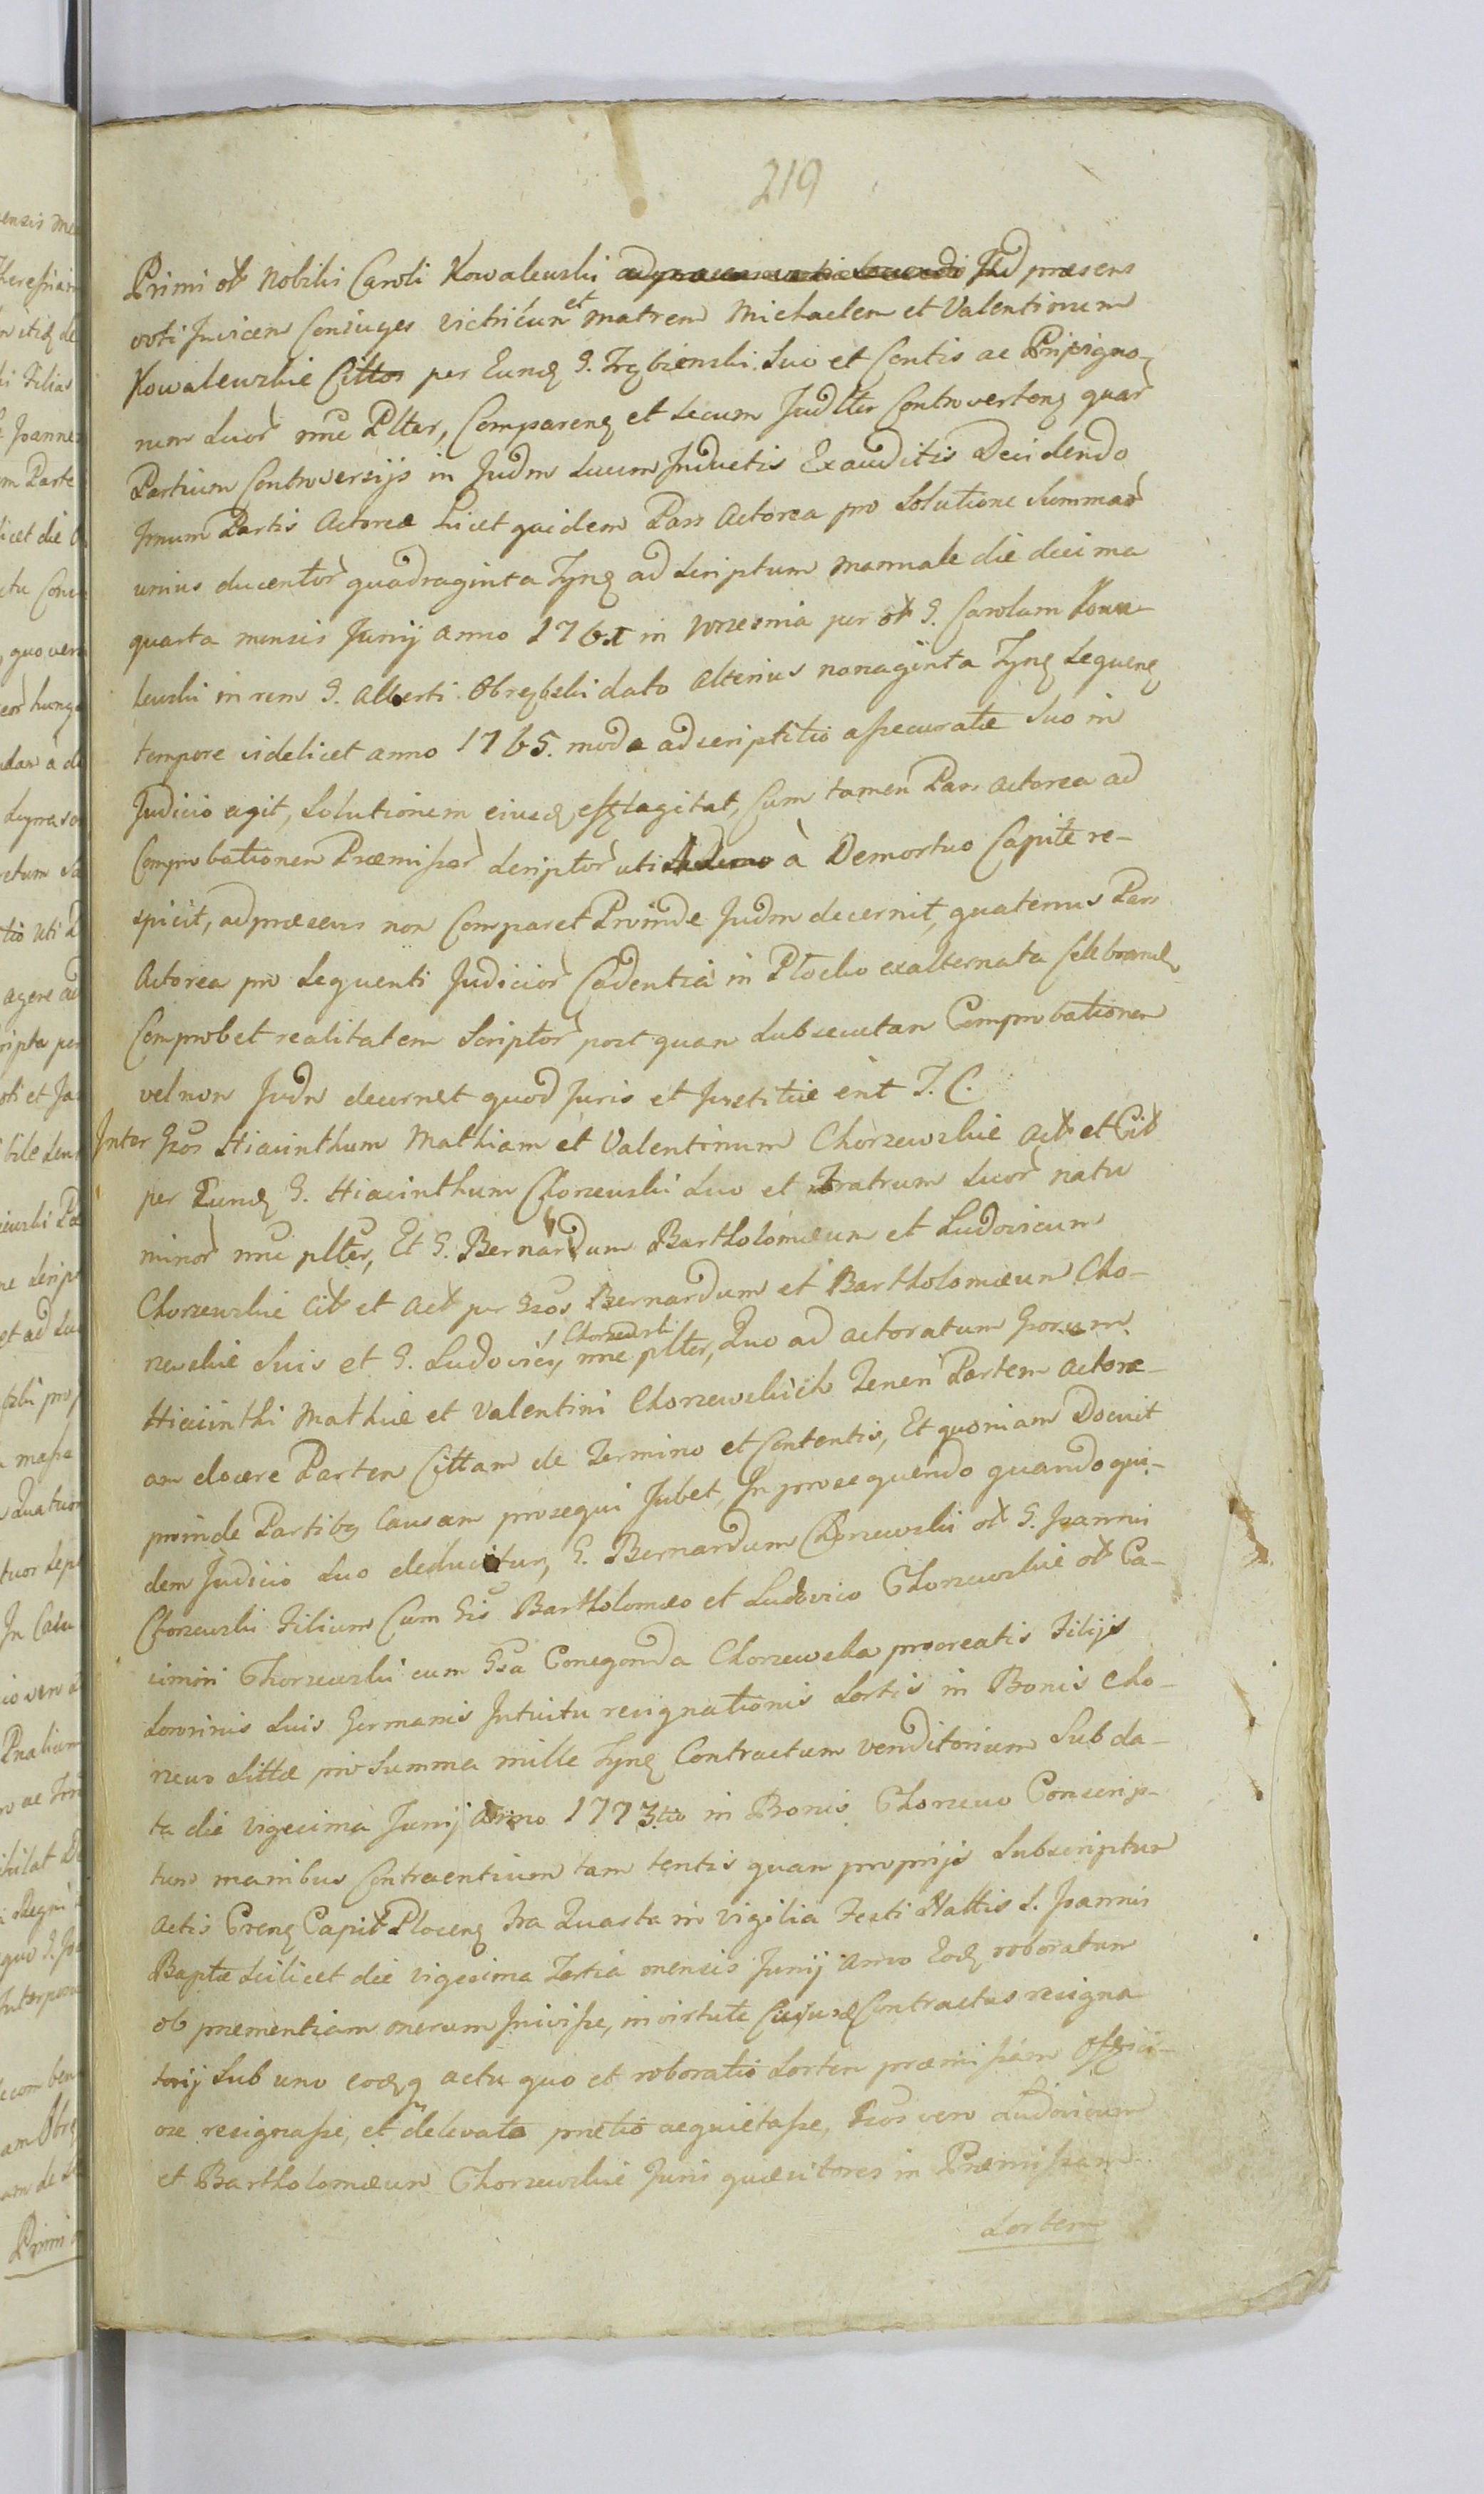 219
Primi ol Nobilis Caroli Kowalewski ad præsens
voti Invicem Coniuges victricum et matrem Michaelem et Valentinum
Kowalewskie Cittos per Eund G. Trębienski Suo et Contis ac Privigno-
rum Suor nne Plter, Compareng et secum Judlter Controverteng quar
Partium Controversijs in Judm suum Inductis Exauditis Decidendo
Imum Partis Actoreæ Licet quidem Pars Actorea pro Solutione Summar
unius ducentor quadraginta Tyng ad scriptum manuale die decima
quarta mensis Junij anno 1761 in Wrzesnia per ol G. Carolum Kowa-
lewski in rem G. Alberti Obrębski dato alterius nonaginta Tyng sequeng
tempore videlicet anno 1765. modo adscriptitio assecuratæ suo in
Judicio agit, Solutionem eiusd efflagitat, Cum tamen Pars actorea ad
Comprobationem Præmissor scriptor uti à Demortuo Capite re-
spicit, ad præsens non Comparet Proinde Judm decernit, quatenus Pars
Actorea pro sequenti Judicior Cadentia in Plocko exalternata Celebrand
Comprobet realitatem Scriptor post quam subsecutam Comprobationem
vel non Judm decernet quod Juris et Justitiæ erit I. C.
Inter Gsos Hiacinthum Mathiam et Valentinum Chorzewskie act et Cit
per Eund G. Hiacinthum Chorzewski suo et Fratrum suor natu
minor nne plter, Et G. Bernardum Bartholomæum et Ludovicum
Chorzewskie Cit et Act per Gsos Bernardum et Bartholomæum Cho-
rzewskie suis et G. Ludovici Chorzewski nne plter, Quo ad actoratum Gsorum
Hiacinthi Mathiæ et Valentini Chorzewskich Tenen Partem actore-
am docere Partem Cittam de Termino et Contentis, Et quoniam Docuit
proinde Partibq Causam prosequi Jubet, In prosequendo quandoqui-
dem Judicio suo deducitur, G. Bernardum Chorzewski ol G. Joannis
Chorzewski Filium Cum Gsis Bartholomæo et Ludovico Chorzewskie ol Ca-
simiri Chorzewski cum Gsa Conegonda Chorzewska procreatis Filijs
Sororinis suis Germanis Intuitu resignationis Sortis in Bonis Cho-
rzewo Sittæ pro Summa mille Tyng Contractum venditorium Sub da-
ta die vigesima Junij Anno 1773tio in Bonis Chorzewo Conscrip-
tum manibus Contraentium tam tentis quam proprijs Subscriptum
actis Creng Capit Ploceng Fra Quarta in vigilia Festi Nattis S. Joannis
Baptæ scilicet die vigesima Tertia mensis Junij Anno Eod roboratum
ob prementiam onerum Inivisse, in virtute Cuiusd Contractus resigna
torij sub uno eodq actu quo et roboratio Sortem præmissam Offici-
ose resignasse, et delevato pretio acquietasse, Gsos vero Ludovicum
et Bartholomæum Chorzewskie Juris quæsitores in Præmissam
Sortem